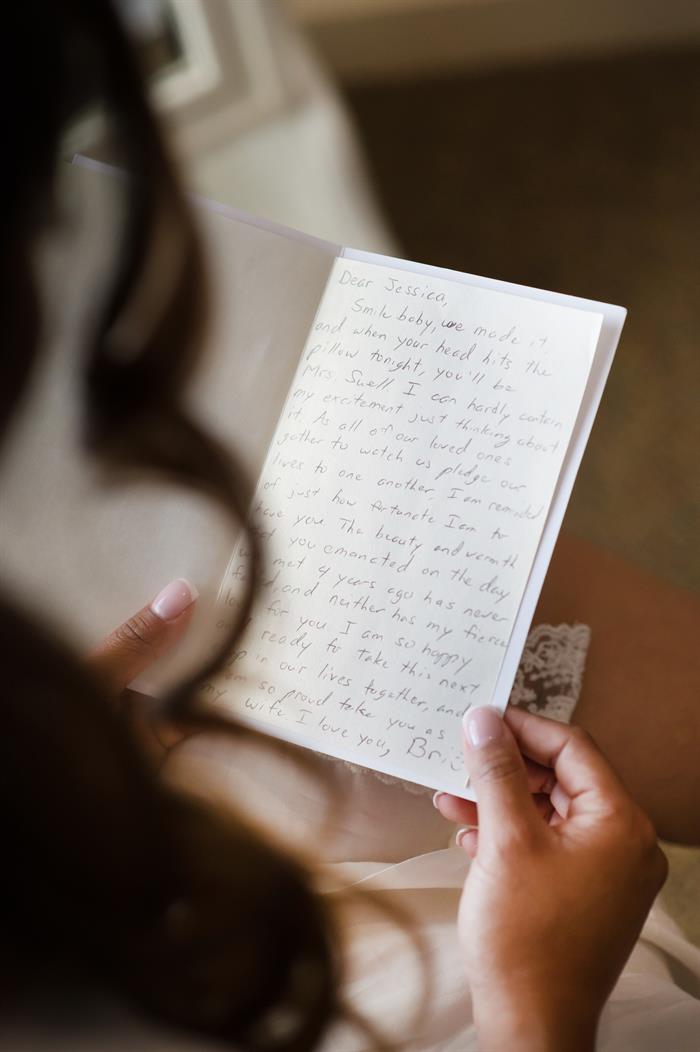 Dear Jessica,
Smile baby, we made it
and when your head hits the
pillow tonight, you'll be
Mrs. Swell I can hardly contain
my excitement just thinking about
it. As all of our loved ones
gather to watch us pledge our
lives to one another, I am reminded
of just how fortunate I am to
have you. The beauty and warmth
you emanated on the day
we met 9 years ago has never
and neither has my fierce
love for you I am so happy
and ready for take this next
in our lives together, and
am so proud take you as
my wife I love you,